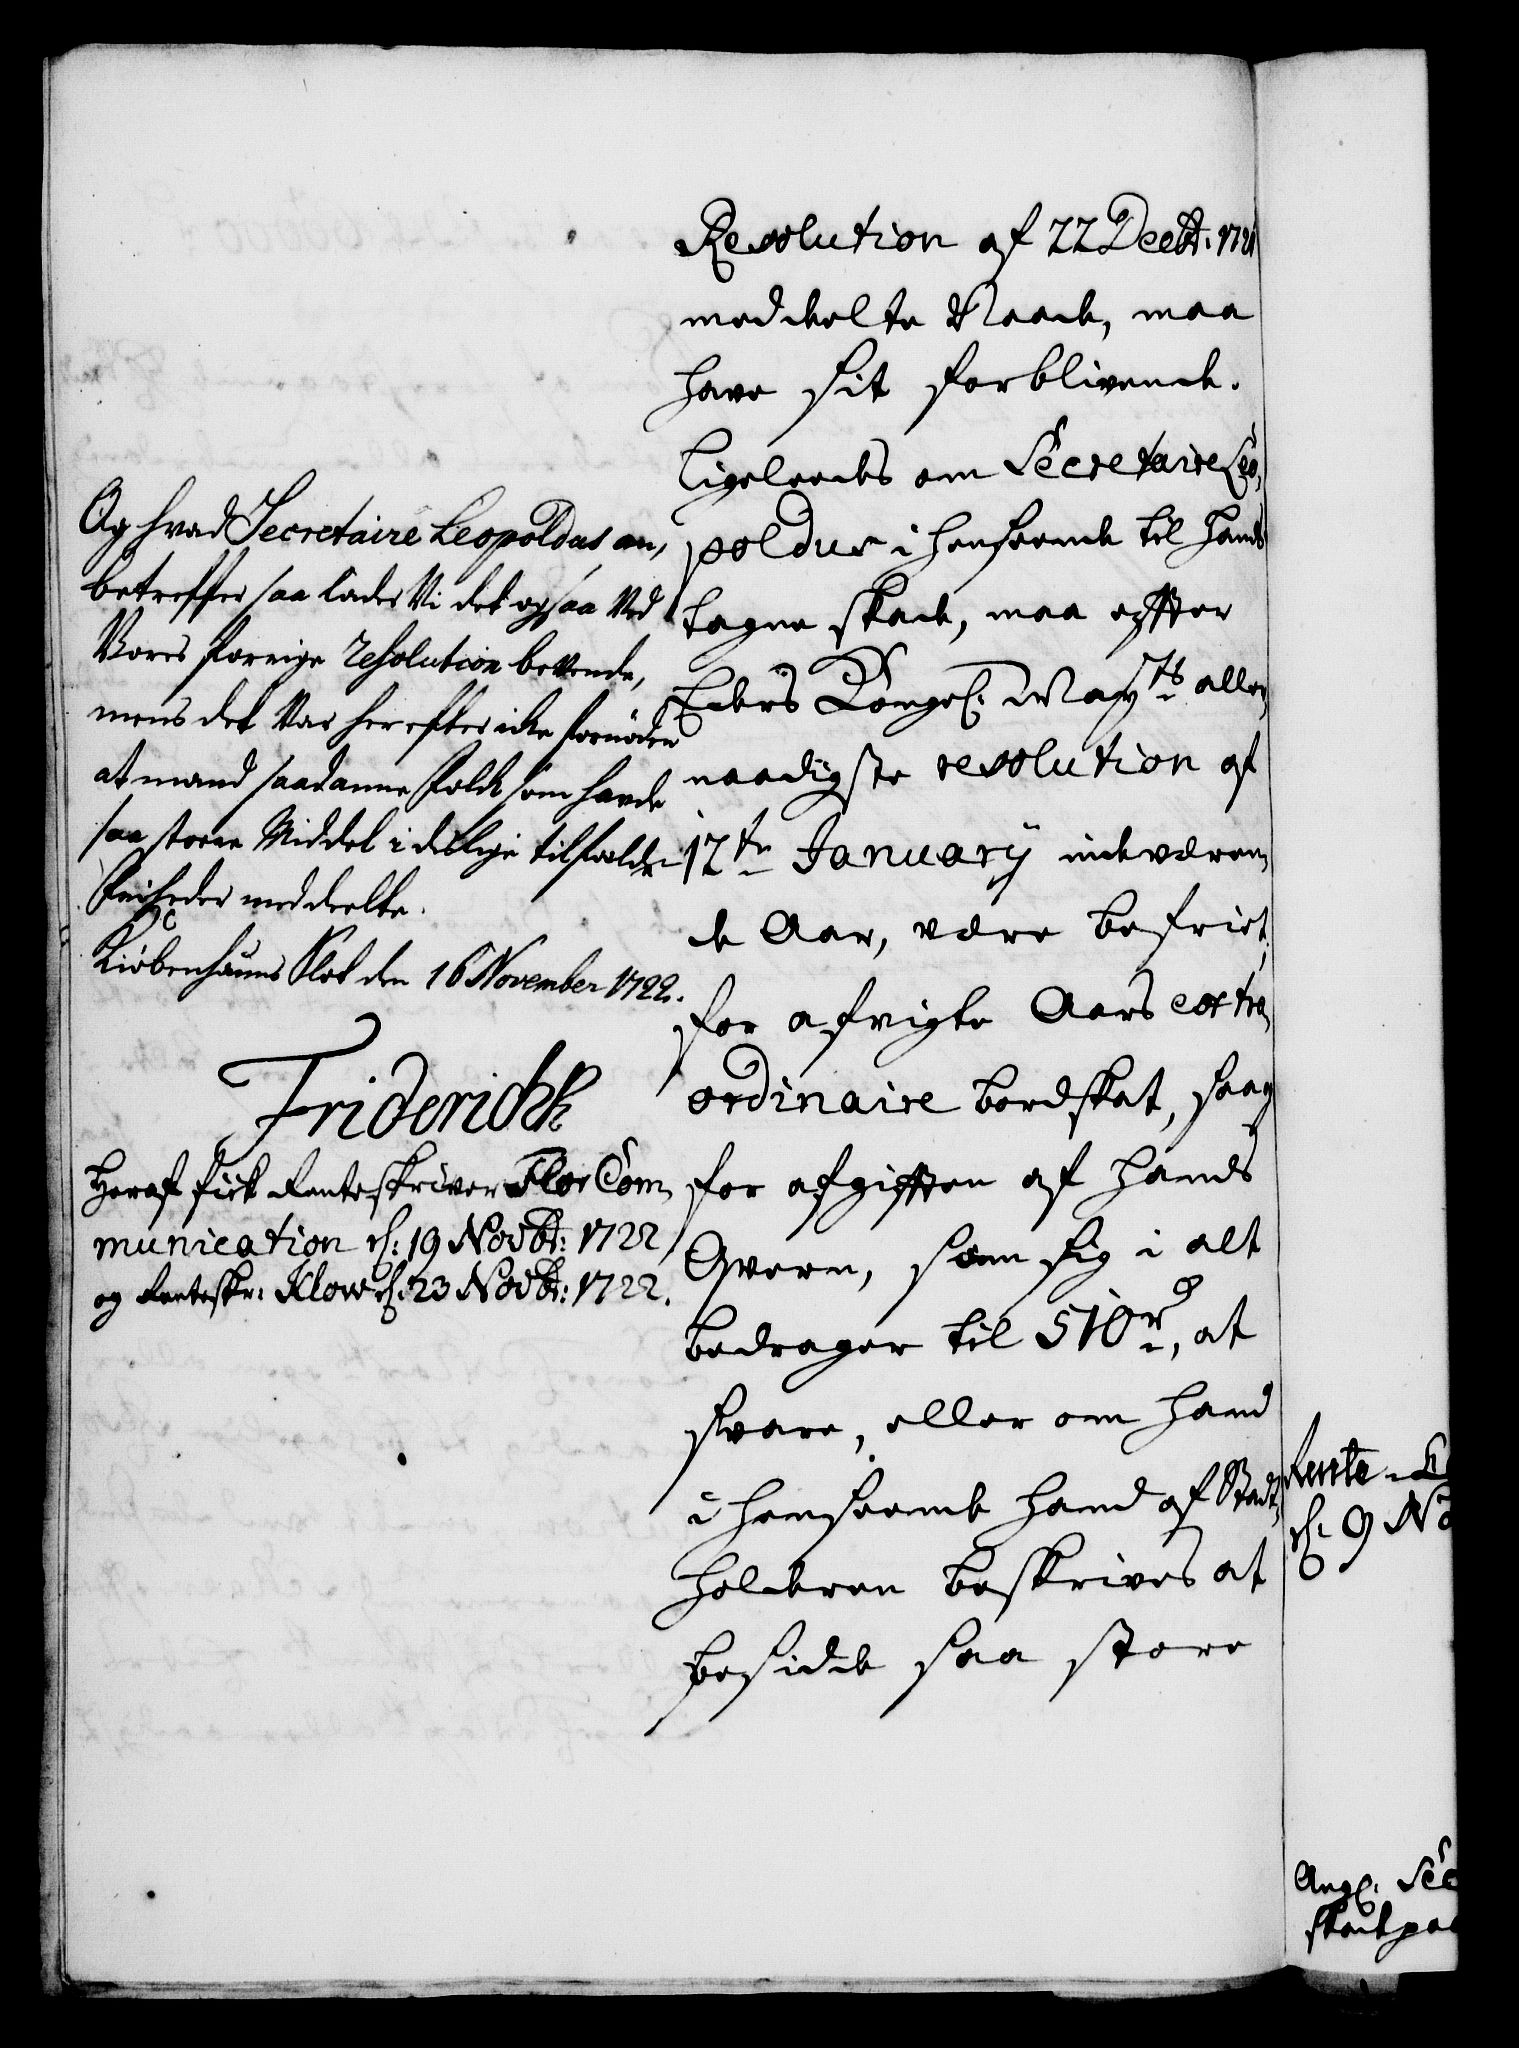 Og hvad Secretaire Leopoldus an,
betreffer saa lader Vi det ogsaa Ved
Vores forrige resolution bevende,
mens det Var herefter icke fornöden
at mand saadanne folck som hafde
saa store Middel i deslige tilfælde
friheder meddeelte.
Kiöbenhauns Slot den 16 November 1722.
Friderich
Heraf fick Renteskriver Flor Com,
munication d: 19 Novbr: 1722
og Renteskr: Klow d: 23 Novbr: 1722.
Resolution af 22 Decbr: 1721
meddeelte Naade, maa
have sit forblivende.
Ligeleedes om Secretaire Leo,
poldus i henseende til hands
tagne skade, maa effter
Eders Kongel: Mayts aller,
naadigste resolution af
12te January indeværen,
de Aar, være befriet,
for afvigte Aars extra,
ordinaire bordskat, saa og
for afgifften af hands
Qvern, som sig i alt
bedrager til 510 rd, at
svare, eller om hand
i henseende hand af Stadt,
holderen beskrives at
besidde saa store
Rente
d: 9 No
Angl: Sec
skatt paa